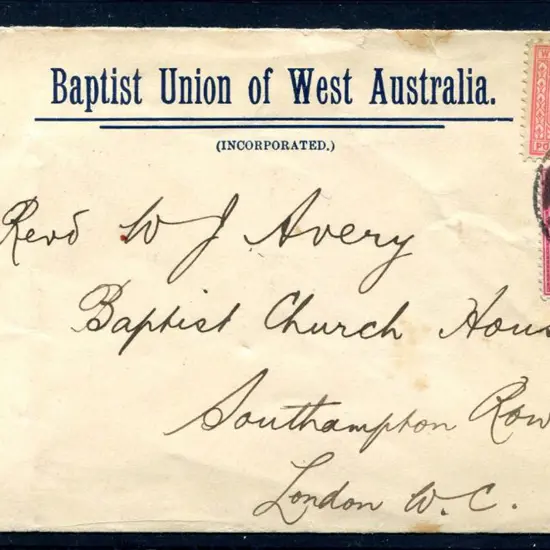 Baptist Union of West Australia.
(INCORPORATED.)
Revd W J Avery
Baptist Church Hous
Southampton Row
London W. C.